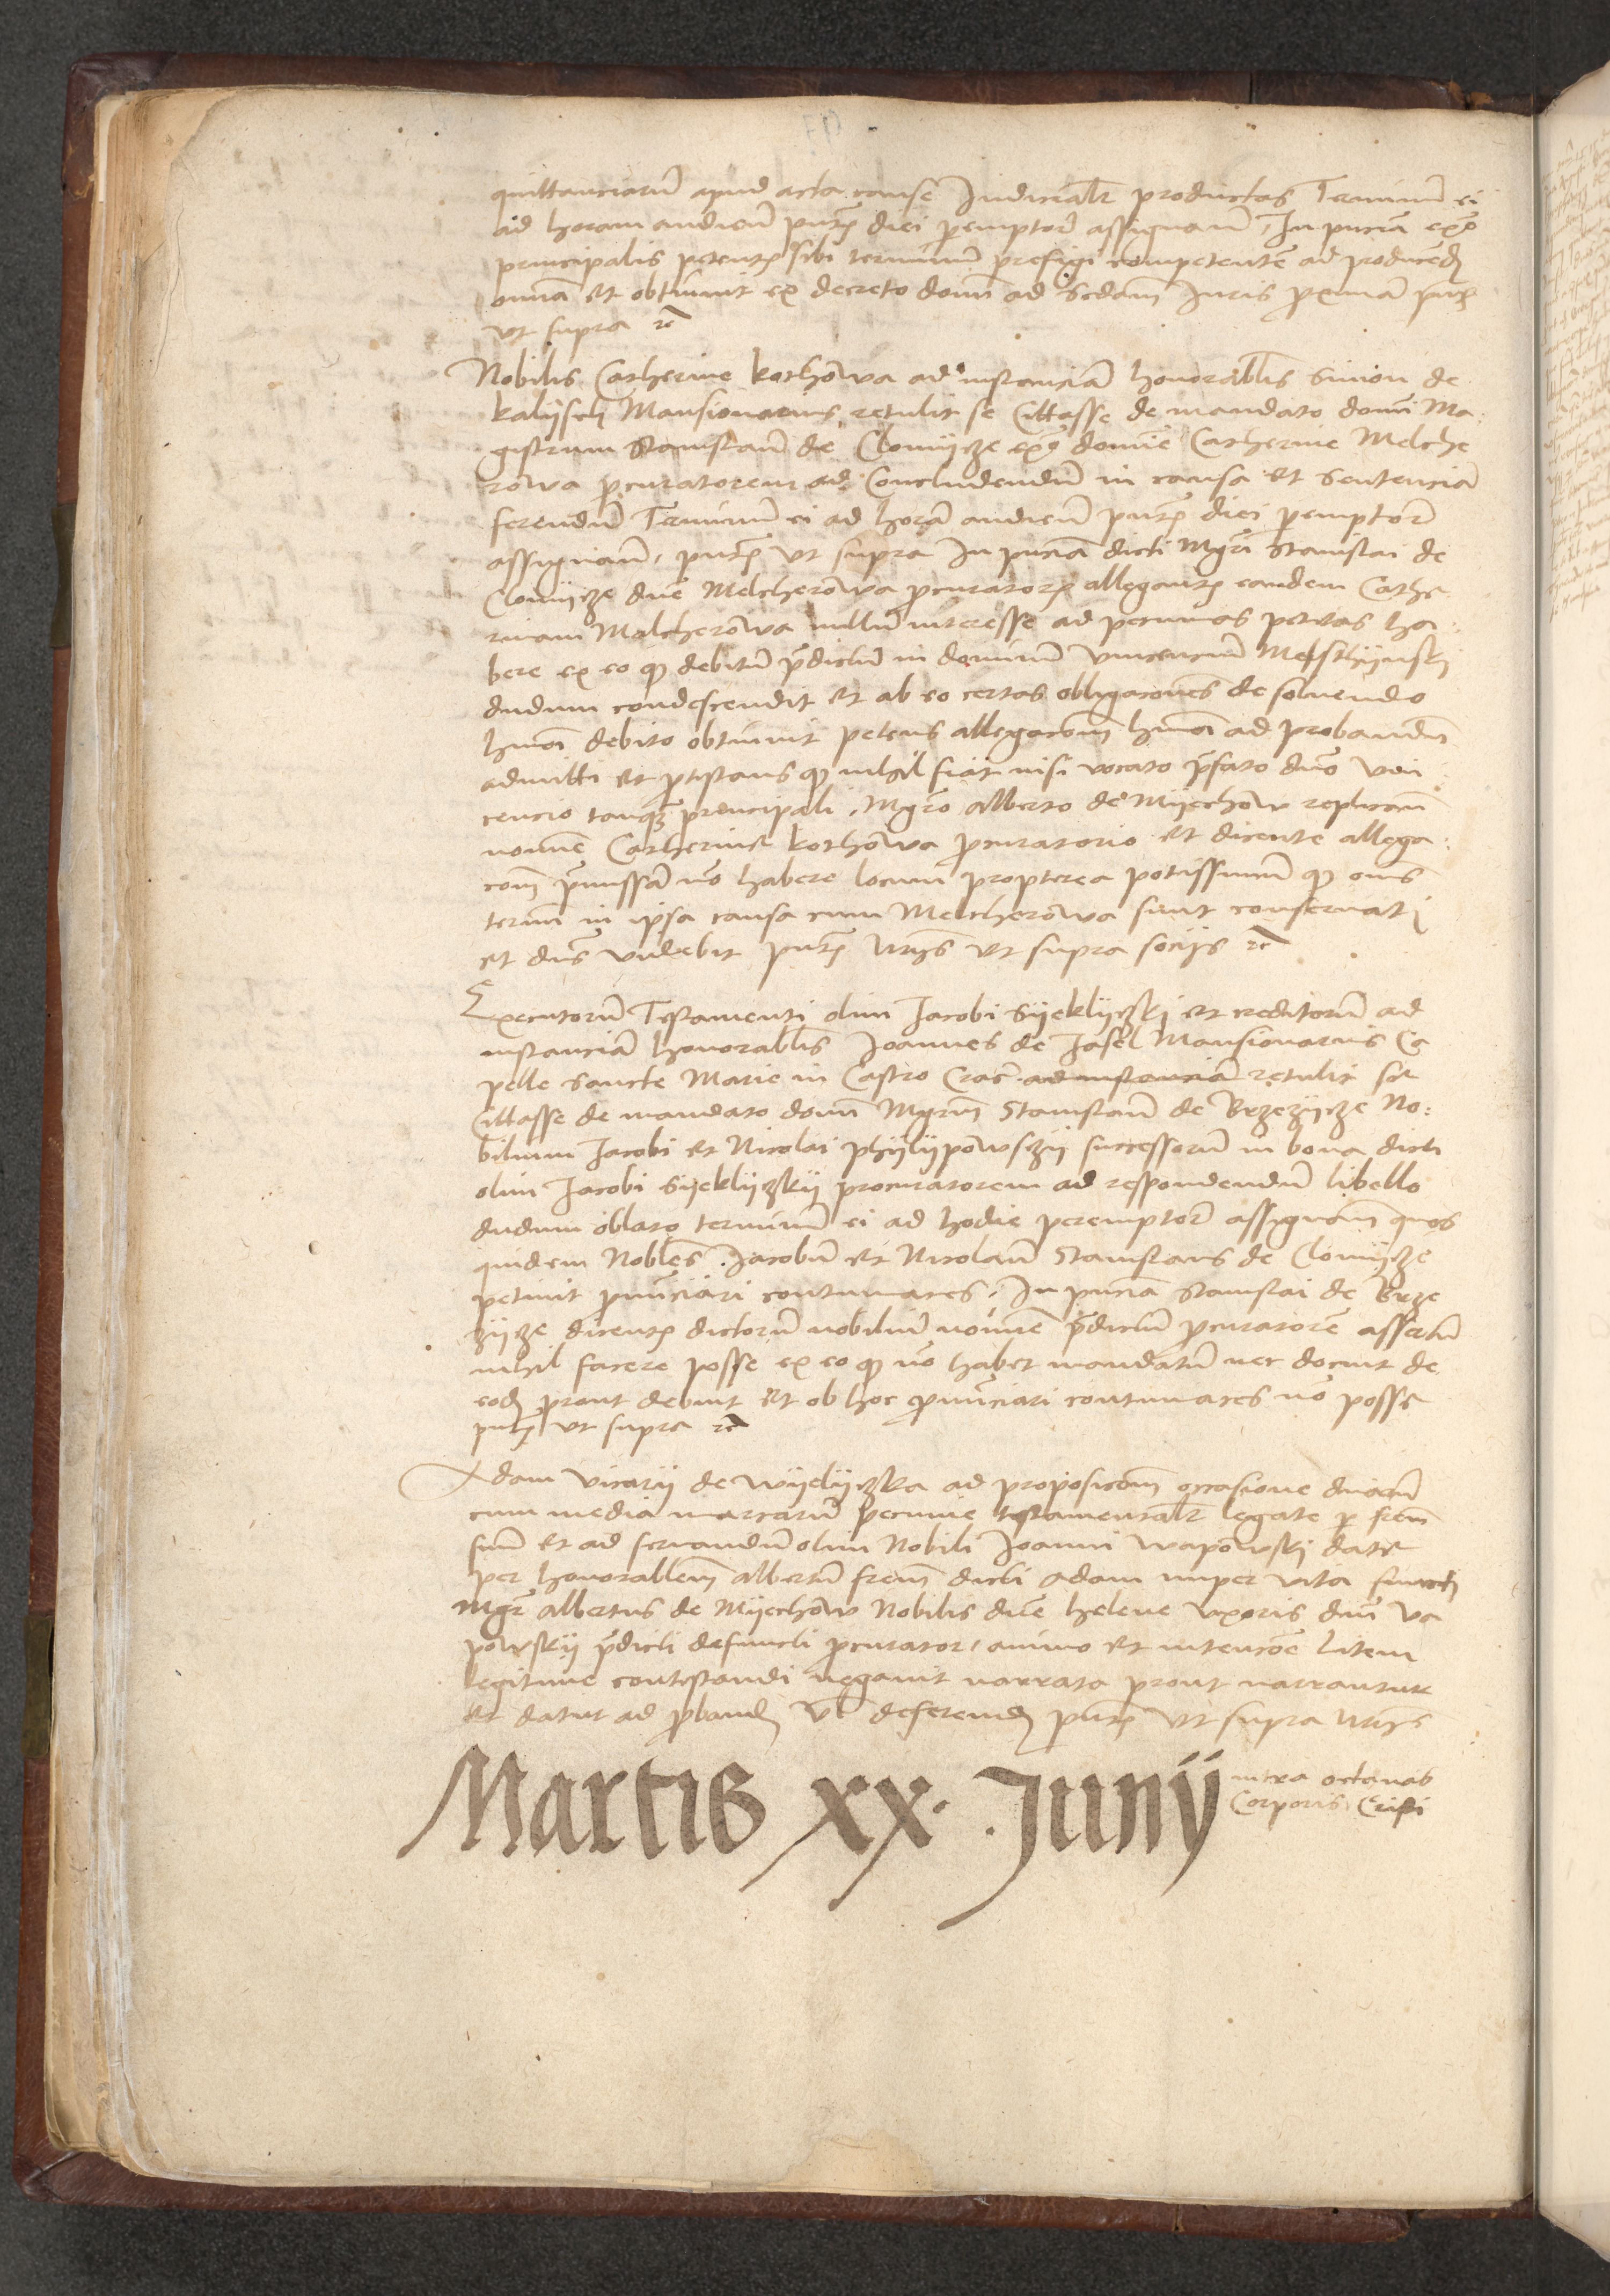 quittanciarum apud acta cause Judicialr productas Terminum ei
ad horam audien pntis diei peremptor assignan, In pncia expo
principalis petentis sibi terminum prefigi competentem ad producend
omnia et obtinuit ex decreto domini ad scdam Juris proximam pntibus
ut supra etc
Nobilis Catherine kothowa ad instanciam honorabilis Simon de
kalijsch Mansionarius retulit se Cittasse de mandato domini Ma
gistrum Stanislaum de Clomijcze ex domine Catherine Melche
rowa procuratorem ad Concludendum in causa et sentenciam
ferendum Terminum ei ad horam audien pntis diei peremptor
assignan, pntibus ut supra In pncia dicti Mgri Stanislai de
Clomijcze dne Melcherowa procuratoris allegantis eandem Cathe
rinam Melcherowa nullum interesse ad pecunias petitas ha
bere ex eo quod debitum predictum in dominum Vincencium
dudum condescendit et ab eo certas obligacones de solvendo
hmoi debito obtinuit petens allegacom hmoi ad probandum
admitti et protestans quod nihil fiat nisi vocato prefato dno Vin
cencio tanquam principali, Mgro Alberto de Mijechow replican
nomine Catherine kothowa procuratorio et dicente allega
com premissam non habere locum propterea potissimum quod omnes
termini in ipsa causa cum Melcherowa sunt conservati
et dns videbit pntibus ut supra socijs etc
Executorum Testamenti olim Jacobi Sijeklijczkj et creditorum ad
instanciam honorabilis Joannes de Jasel Mansionarius Ca
pelle Sancte Marie in Castro Crac ad instanciam retulit se
Cittasse de mandato domini Mgrum Stanislaum de Brzezijcze No:
bilium Jacobi et Nicolai phijlijpowsczij successorum in bona dicti
olim Jacobi Sijeklijczkij procuratorem ad respondendum libello
dudum oblato terminum ei ad hodie peremptor assignan quos
quidem Nobles Jacobum et Nicolaum Stanislaus de Clomijcze
petiuit pronunciari contumaces, In pncia Stanislai de Brze
zijcze dicentis dictorum nobilium nomine predictum procuratorem assertum
nihil facere posse ex eo quod non habet mandatum nec docuit de
eodem prout debuit et ob hoc pronunciari contumaces non posse
pntibus ut supra etc
Adam vicarij de wijelijczka ad proposicom occasione duarum
cum media marcarum pecunie testamentalr legate per frem
suum et ad servandum olim Nobili Joanni wapowskj date
per honorablem albertum frem dicti adam nuper vita functi
Mgr albertus de Mijechow Nobilis dne helene uxoris dni va
powskij predicti defuncti procurator, animo et intencone litem
legitime contestandi negauit narrata prout narrantur
et datur ad proband vel deferend pntibus ut supra
Martis xx. Junij intra octauas
Corporis Cristi